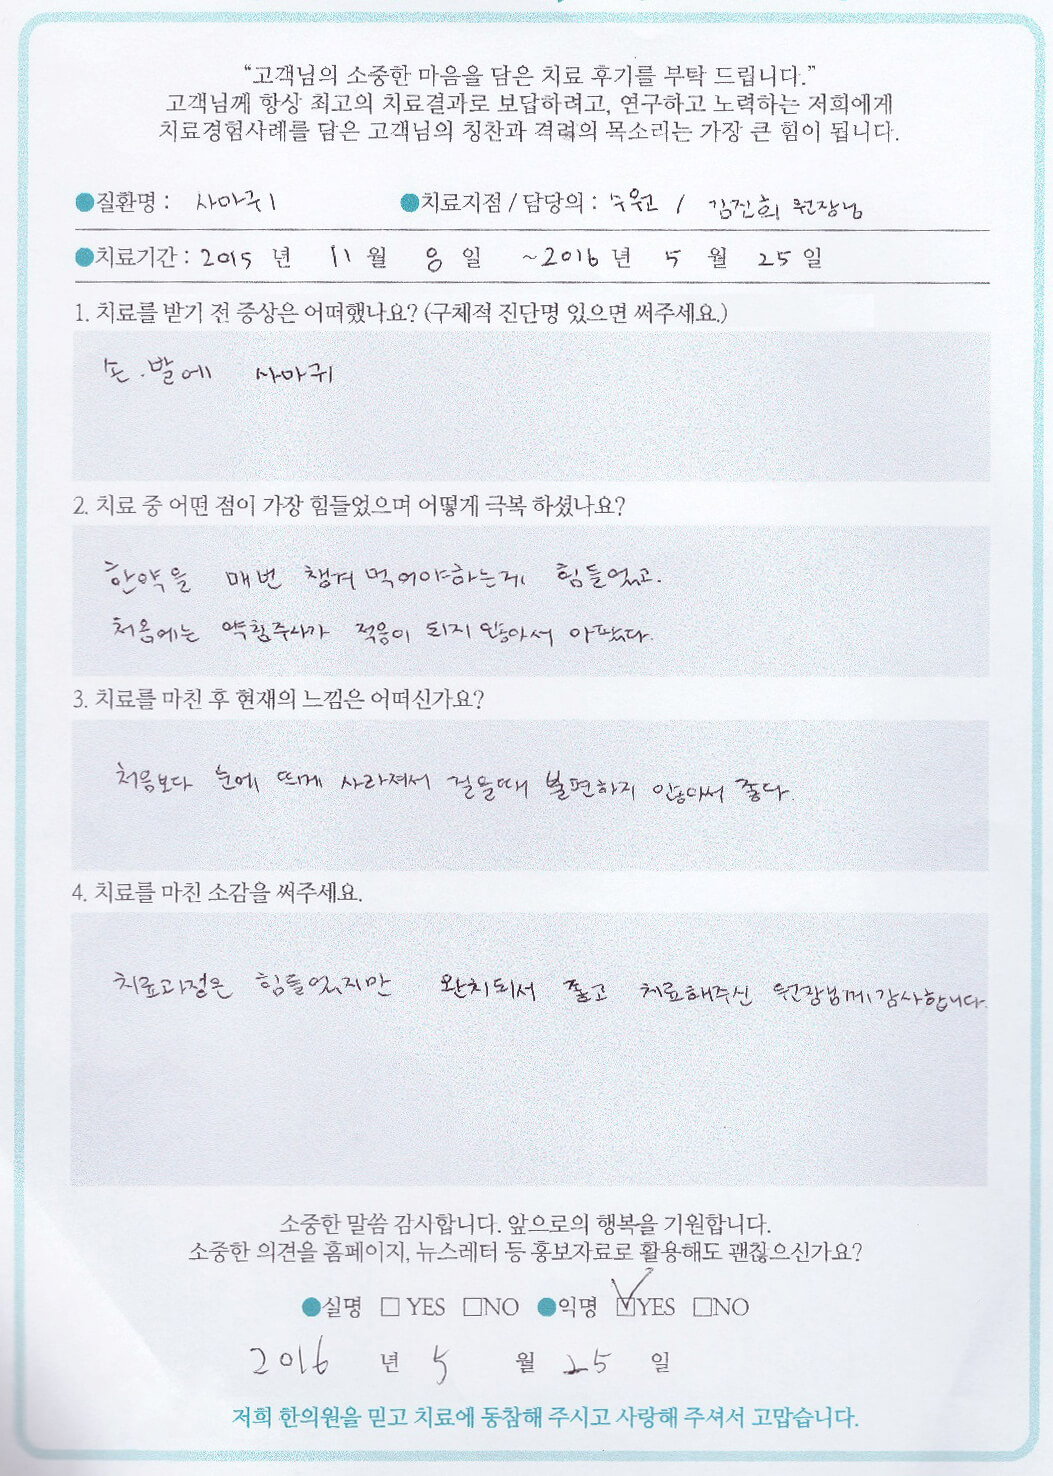 “고객님의 소중한 마음을 담은 치료 후기를 부탁 드립니다.”
고객님께 항상 최고의 치료결과로 보답하려고, 연구하고 노력하는 저희에게
치료경험사례를 담은 고객님의 칭찬과 격려의 목소리는 가장 큰 힘이 됩니다.
질환명 : 사마귀 치료지점 / 담당의 : 수원 / 김진희 원장님
치료기간 : 2015 년 11 월 일 ~ 2016 년 5 월 25 일
1. 치료를 받기 전 증상은 어떠했나요? (구체적 진단명 있으면 써주세요.)
손.발에 사마귀
2. 치료 중 어떤 점이 가장 힘들었으며 어떻게 극복 하셨나요?
한약을 매번 챙겨 먹어야하는게 힘들었고.
처음에는 약침주사가 적응이 되지 않아서 아팠다.
3. 치료를 마친 후 현재의 느낌은 어떠신가요?
처음보다 눈에 띄게 사라져서 걸을때 불편하지 않아서 좋다.
4. 치료를 마친 소감을 써주세요.
치료과정은 힘들었지만 완치되서 좋고 치료해주신 원장님께 감사합니다.
소중한 말씀 감사합니다. 앞으로의 행복을 기원합니다.
소중한 의견을 홈페이지, 뉴스레터 등 홍보자료로 활용해도 괜찮으신가요?
실명 □ YES □NO 익명 ☑YES □NO
2016 년 5 월 25 일
저희 한의원을 믿고 치료에 동참해 주시고 사랑해 주셔서 고맙습니다.